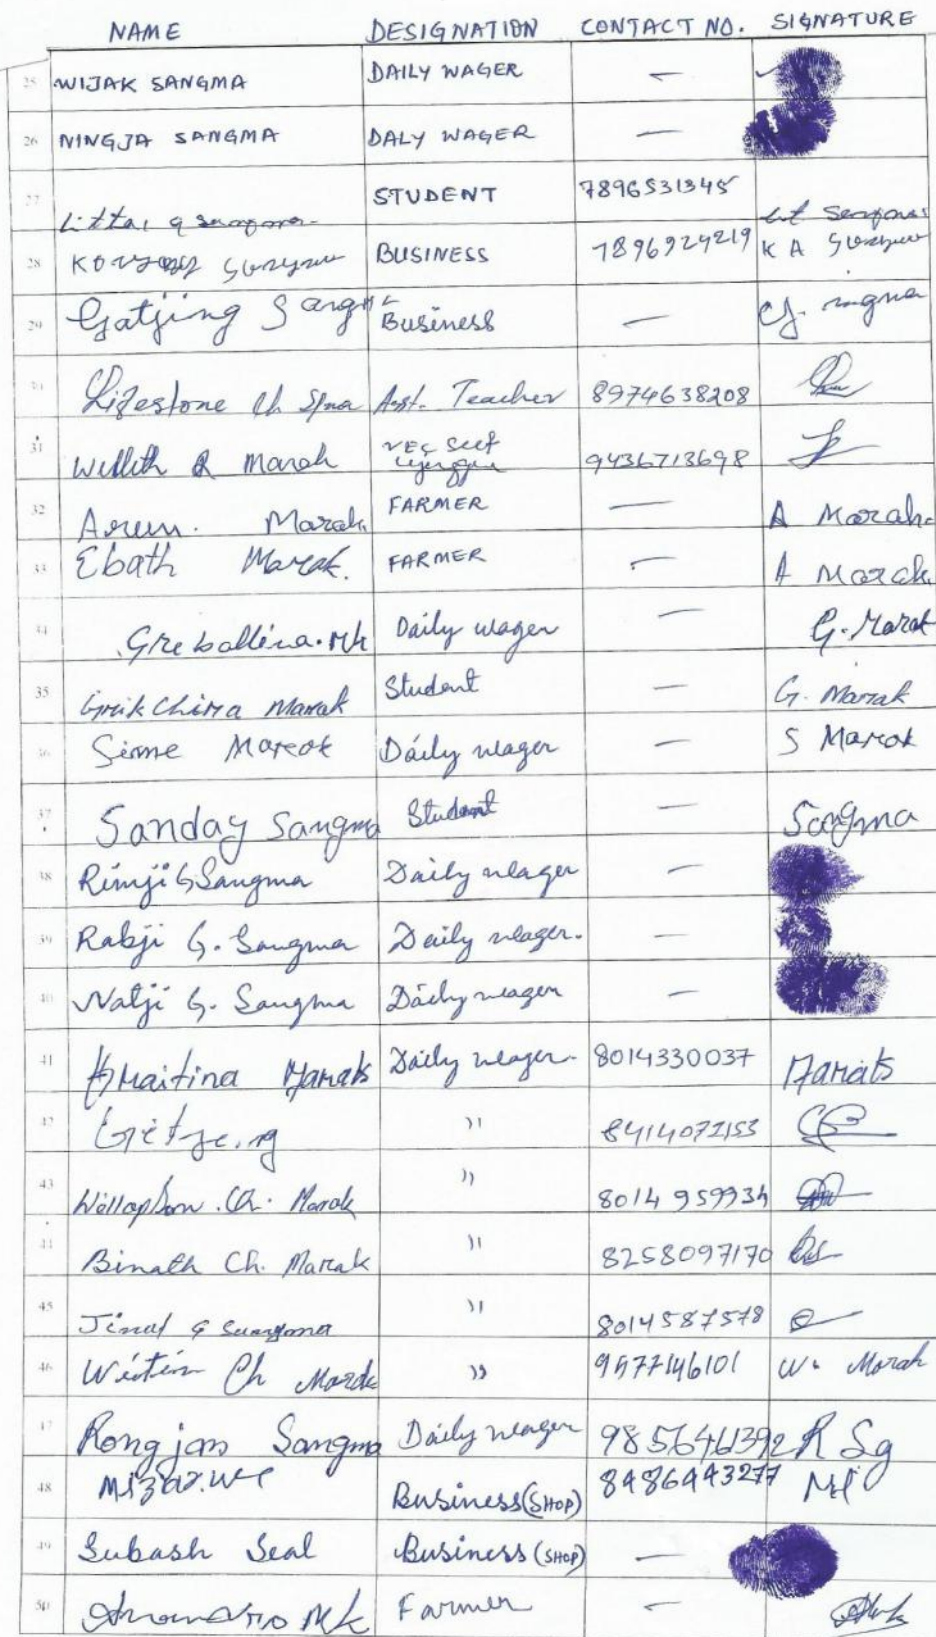 NAME DESIGNATION CONTACT NO. SIGNATURE
25 WIJAK SANGMA DAILY WAGER —
26 NINGJA SANGMA DALY WAGER —
27 STUDENT 7896531345
28 BUSINESS 7896924219 K A
29 Gatjing Sangma Business —
Lifestone Ch Sma Asst. Teacher 8974638208
31 Willith R Marak VEC 9436713698
32 Arun. Marak. FARMER — A Marak.
33 Ebath Marak. FARMER — A Marak.
34 Greballina. Mk Daily wager — G. Marak
35 Grikchira Marak Student — G. Marak
36 Sime Marak Daily wager — S Marak
37 Sanday Sangma Student — Sangma
38 Rimji G Sangma Daily wager —
39 Rabji G. Sangma Daily wager. —
40 Natji G. Sangma Daily wager —
41 Marak Daily wager. 8014330037 Marak
42 " 8414072153
43 Ch. Marak " 8014959934
44 Binath Ch. Marak " 8258097170
45 Jinal G Sangma " 8014587578
46 Witin Ch Marak " 9577146101 W. Marak
47 Rongjan Sangma Daily wager 9856461392 R Sg
48 Business (SHOP) 8486443277
49 Subash Seal Business (SHOP) —
50 Mk Farmer —